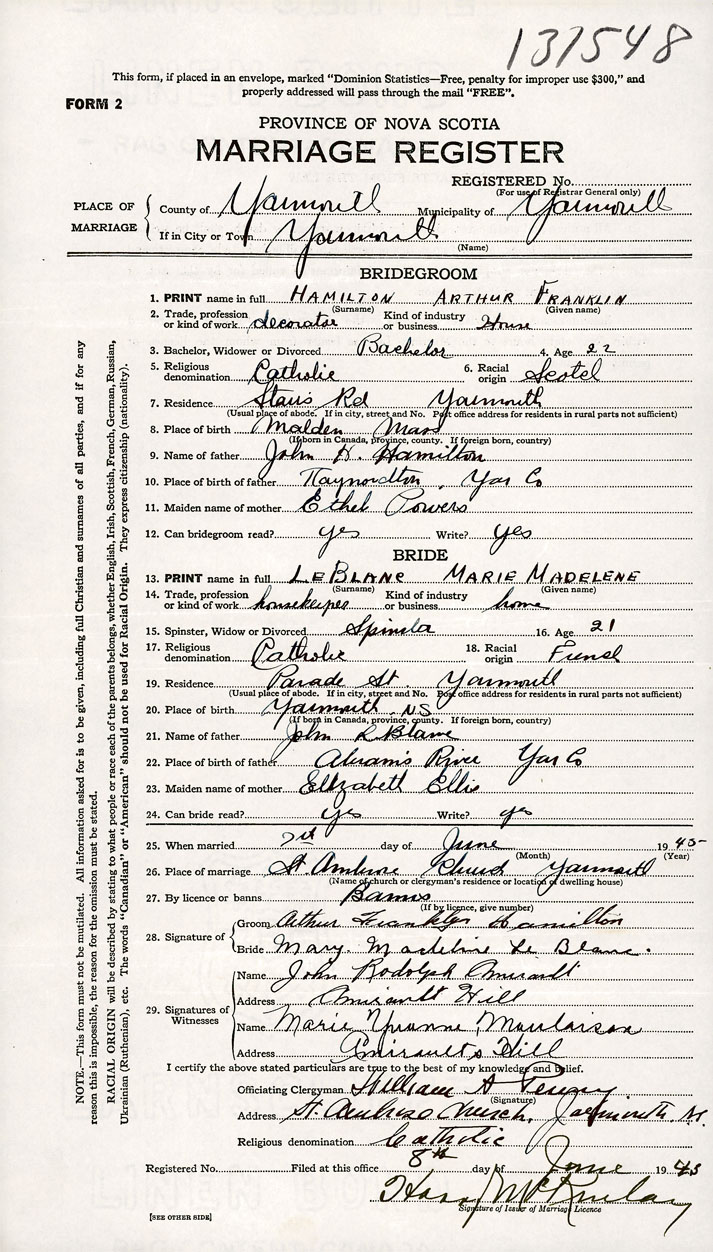 137548
This form, if placed in an envelope, marked "Dominion Statistics—Free, penalty for improper use $300," and
properly addressed will pass through the mail "FREE".
FORM 2
PROVINCE OF NOVA SCOTIA
MARRIAGE REGISTER
REGISTERED No.
(For use of Registrar General only)
PLACE OF MARRIAGE
County of Yarmouth Municipality of Yarmouth
If in City or Town Yarmouth
(Name)
BRIDEGROOM
1. PRINT name in full HAMILTON ARTHUR FRANKLIN
(Surname) (Given name)
2. Trade, profession or kind of work decorator Kind of industry or business House
3. Bachelor, Widower or Divorced Bachelor 4. Age 22
5. Religious denomination Catholic 6. Racial origin Scotch
7. Residence Rd Yarmouth
(Usual place of abode. If in city, street and No. Post office address for residents in rural parts not sufficient)
8. Place of birth Malden Mass
(If born in Canada, province, county. If foreign born, country)
9. Name of father John H. Hamilton
10. Place of birth of father Yar Co
11. Maiden name of mother Ethel Powers
12. Can bridegroom read? yes Write? yes
BRIDE
13. PRINT name in full LEBLANC MARIE MADELENE
(Surname) (Given name)
14. Trade, profession or kind of work housekeeper Kind of industry or business home
15. Spinster, Widow or Divorced Spinster 16. Age 21
17. Religious denomination Catholic 18. Racial origin French
19. Residence Parade St. Yarmouth
(Usual place of abode. If in city, street and No. Post office address for residents in rural parts not sufficient)
20. Place of birth Yarmouth, NS
(If born in Canada, province, county. If foreign born, country)
21. Name of father John LeBlanc
22. Place of birth of father Abrams River Yar Co
23. Maiden name of mother Elizabeth Ellis
24. Can bride read? yes Write? yes
25. When married 7th day of June 1945
(Month) (Year)
26. Place of marriage St. Ambrose Church Yarmouth
(Name of church or clergyman's residence or location of dwelling house)
27. By licence or banns Banns
(If by licence, give number)
28. Signature of
Groom Arthur Franklyn Hamilton
Bride Mary. Madeline Le Blanc.
29. Signatures of Witnesses
Name John Rodolph Amirault
Address Amirault Hill
Name Marie Yvonne Moulaison
Address Amirault's Hill
I certify the above stated particulars are true to the best of my knowledge and belief.
Officiating Clergyman William A
(Signature)
Address St. Ambrose Church, Yarmouth, N.
Religious denomination Catholic
Registered No. Filed at this office 8th day of June 1945
Signature of Issuer of Marriage Licence
[SEE OTHER SIDE]
NOTE.—This form must not be mutilated. All information asked for is to be given, including full Christian and surnames of all parties, and if for any
reason this is impossible, the reason for the omission must be stated.
RACIAL ORIGIN will be described by stating to what people or race each of the parents belongs, whether English, Irish, Scottish, French, German, Russian,
Ukrainian (Ruthenian), etc. The words "Canadian" or "American" should not be used for Racial Origin. They express citizenship (nationality).